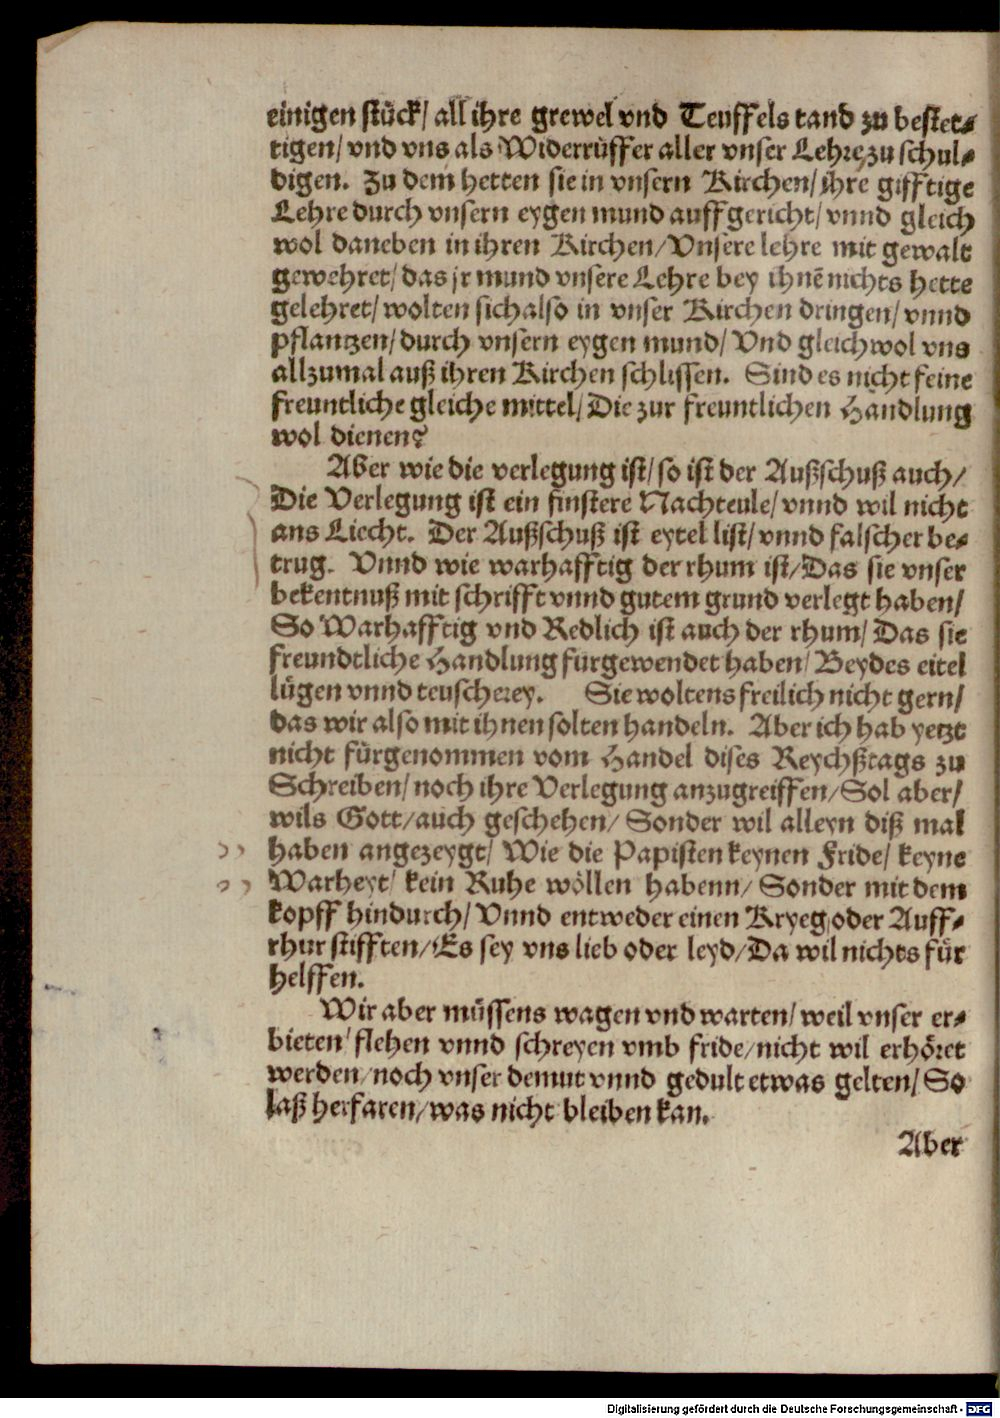 einigen stück/ all ihre grewel vnd Teuffels tand zu bestet⸗
tigen/ vnd vns als Widerrüffer aller vnser Lehre zu schul⸗
digen. Zu dem hetten sie in vnsern Kirchen/ ihre gifftige
Lehre durch vnsern eygen mund auffgericht/ vnnd gleich
wol daneben in ihren Kirchen/ Vnsere lehre mit gewalt
gewehret/ das jr mund vnsere Lehre bey ihnē nichts hette
gelehret/ wolten sich also in vnser Kirchen dringen/ vnnd
pflantzen/ durch vnsern eygen mund/ Vnd gleichwol vns
allzumal auß ihren Kirchen schlissen. Sind es nicht feine
freuntliche gleiche mittel/ Die zur freuntlichen Handlung
wol dienen?
Aber wie die verlegung ist/ so ist der Außschuß auch/
Die Verlegung ist ein finstere Nachteule/ vnnd wil nicht
ans Liecht. Der Außschuß ist eytel list/ vnnd falscher be⸗
trug. Vnnd wie warhafftig der rhum ist/ Das sie vnser
bekentnuß mit schrifft vnnd gutem grund verlegt haben/
So Warhafftig vnd Redlich ist auch der rhum/ Das sie
freundtliche Handlung fürgewendet haben/ Beydes eitel
lügen vnnd teuscherey. Sie woltens freilich nicht gern/
das wir also mit ihnen solten handeln. Aber ich hab yetzt
nicht fürgenommen vom Handel dises Reychßtags zu
Schreiben/ noch ihre Verlegung anzugreiffen/ Sol aber/
wils Gott/ auch geschehen/ Sonder wil alleyn diß mal
haben angezeygt/ Wie die Papisten keynen Fride/ keyne
Warheyt/ kein Ruhe wöllen habenn/ Sonder mit dem
kopff hindurch/ Vnnd entweder einen Kryeg oder Auff⸗
rhur stifften/ Es sey vns lieb oder leyd/ Da wil nichts für
helffen.
Wir aber müssens wagen vnd warten/ weil vnser er⸗
bieten/ flehen vnnd schreyen vmb fride/ nicht wil erhöret
werden/ noch vnser demut vnnd gedult etwas gelten/ So
laß herfaren/ was nicht bleiben kan.
Aber
Digitalisierung gefördert durch die Deutsche Forschungsgemeinschaft - DFG